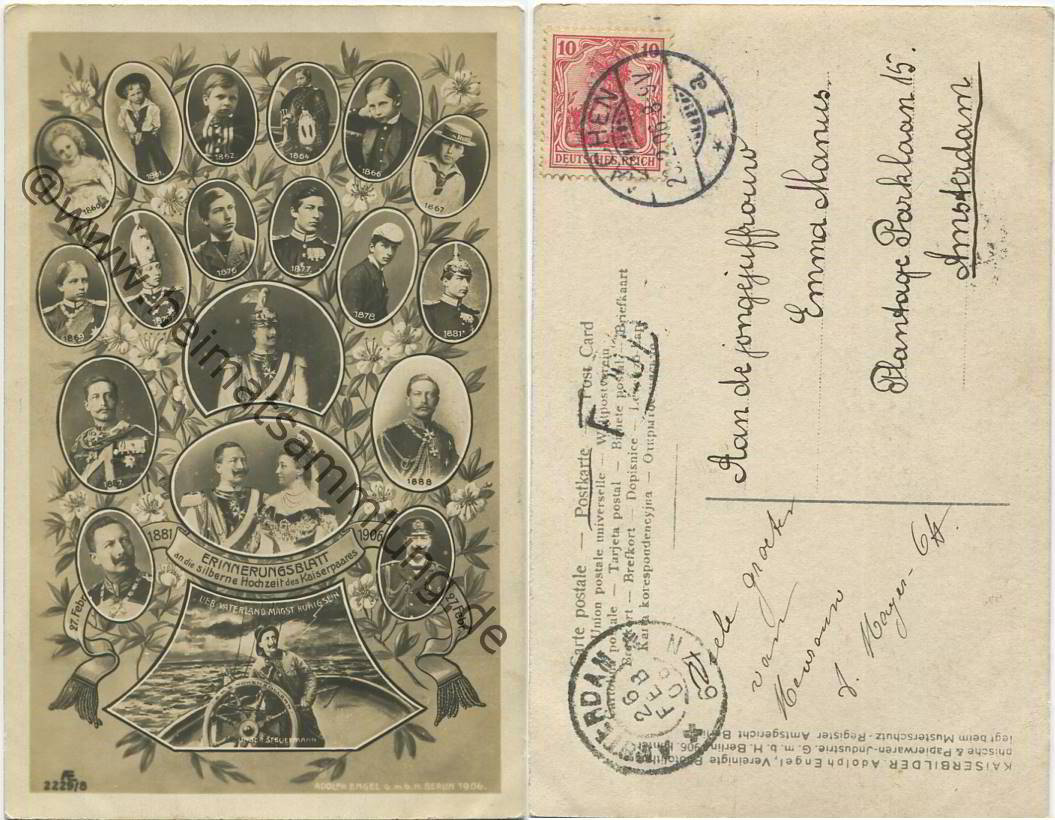 1861.
1862
1864
1866
1867
1869
1876
1877
1878
1881
1887
1888
1881
1906
ERINNERUNGSBLATT
an die silberne Hochzeit des Kaiserpaares
27. Febr.
27. Febr.
LIEB VATERLAND MAGST RUHIG SEIN
UNSER STEUERMANN
2229/8
ADOLPH ENGEL G.m.b.H. BERLIN 1906.
@www.heimatsammlung.de
10 10
DEUTSCHES REICH
Aan de jongejuffrouw
Emma Manus.
Plantage Parklaan 15.
Amsterdam
Carte postale — Postkarte — Post Card
Union postale universelle — Weltpostverein
Tarjeta postal — Bilhete postal — Briefkaart
Brefkort — Dopisnice
Karta korespondencyjna
Vele
van groeten
Mayer
AMSTERDAM
26 FEB 06
KAISERBILDER Adolph Engel, Vereinigte
phische & Papierwaren-Industrie G. m. b. H. Berlin 1906,
legt beim Musterschutz-Register Amtsgericht